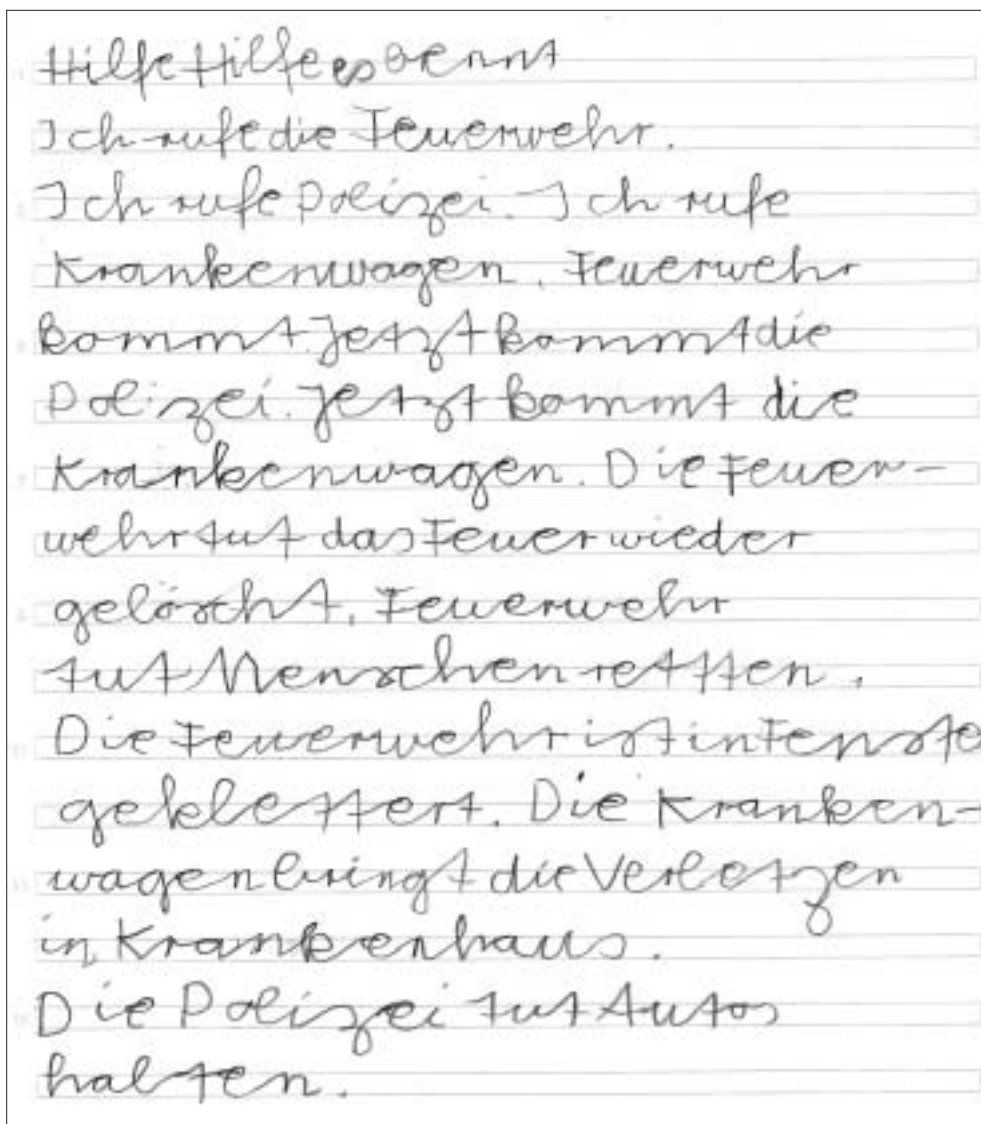 Hilfe Hilfe es brennt
Ich rufe die Feuerwehr.
Ich rufe Polizei. Ich rufe
Krankenwagen. Feuerwehr
kommt. Jetzt kommt die
Polizei. Jetzt kommt die
Krankenwagen. Die Feuer-
wehr tut das Feuer wieder
gelöscht. Feuerwehr
tut Menschen retten.
Die Feuerwehr ist in Fenste
geklettert. Die Kranken-
wagen bringt die Verletzen
in Krankenhaus.
Die Polizei tut Autos
halten.